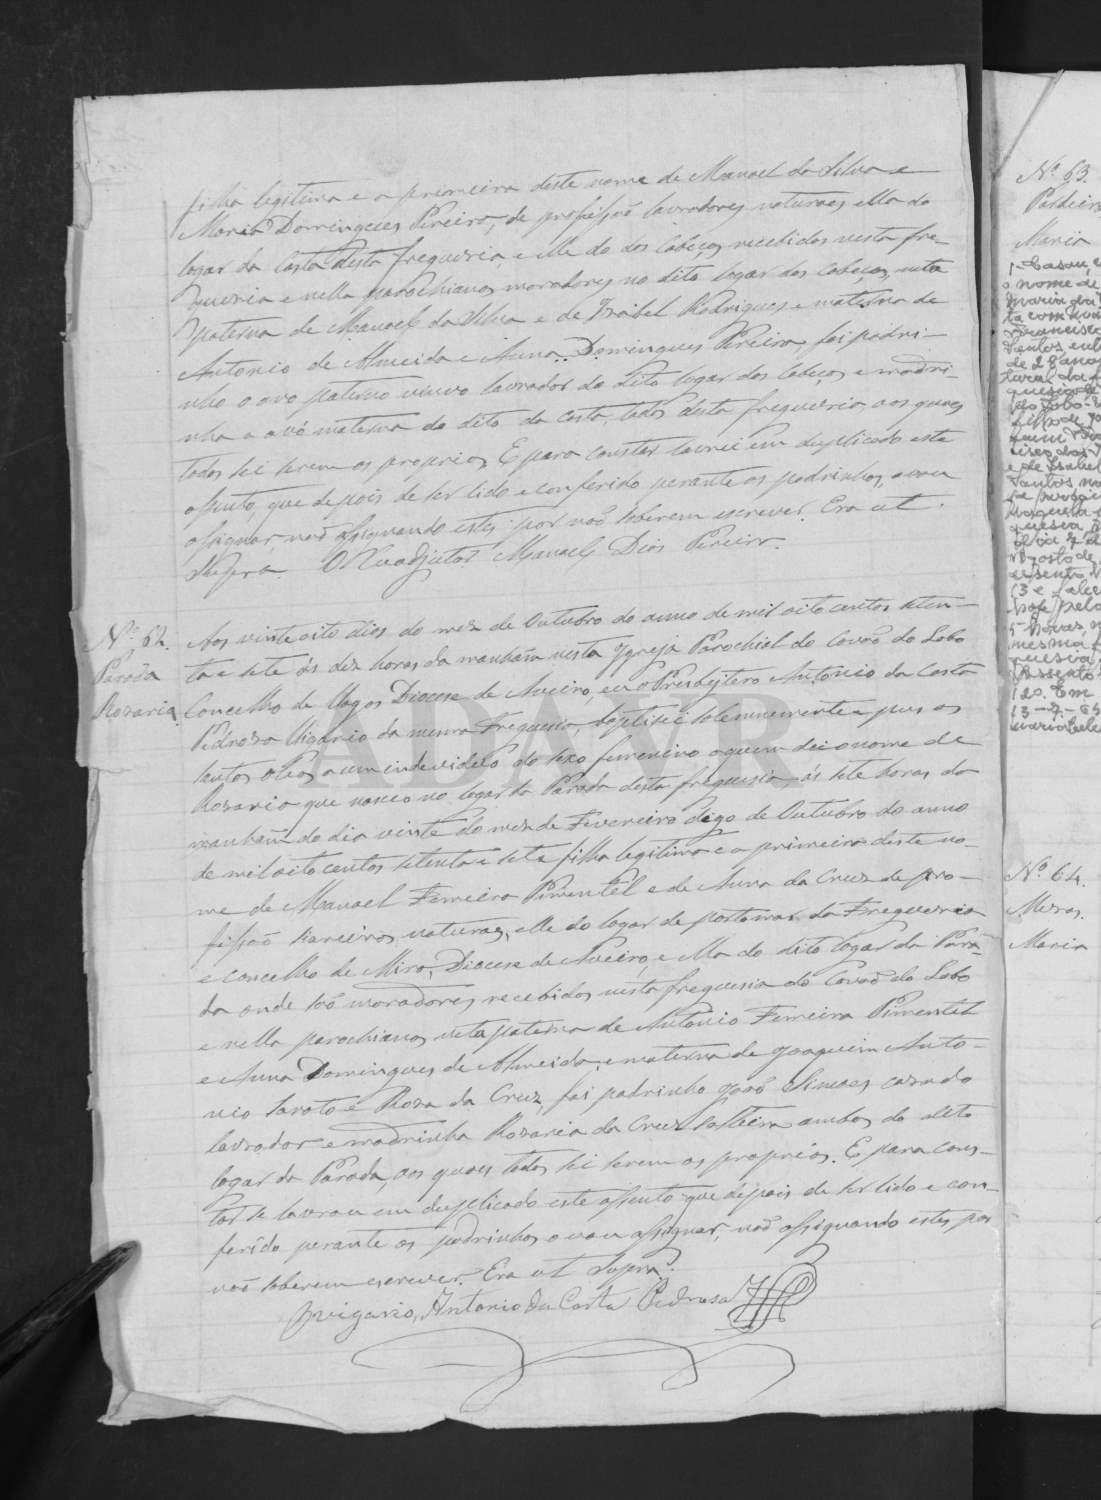 filha legitima e a primeira deste nome de Manoel da Silva e
Maria Domingues Pereira, de profissão lavradores naturaes ella do
logar da Costa desta freguesia, e elle do dos Cabeços, recebidos nesta fre-
guesia e nella parochianos moradores no dito logar dos Cabeços, neta
paterna de Manoel da Silva e de Izabel Rodrigues e materna de
Antonio de Almeida e Anna Domingues Pereira, foi padri-
nho o avo paterno viuvo lavrador do dito logar dos Cabeços e madri-
nha a avó materna do dito da Costa, todos desta freguesia, aos quaes
todos sei serem os proprios. E para constar lavrei em duplicado este
assento, que depois de ser lido e conferido perante os padrinhos, o vou
assignar, não assignando estes por não saberem escrever. Era ut
supra. O Coadjutor Manoel Dias Pereira.
Nº 62.
Parada
Rozaria
Aos vinte oito dias do mez de Outubro do anno de mil oito centos seten-
ta e sete ás dez horas da manhãm nesta Igreja Parochial do Covão do Lobo
Concelho de Vagos Diocese de Aveiro, eu o Presbytero Antonio da Costa
Pedroza Vigario da mesma Freguesia, baptisei solemnemente e pus os
santos oleos a um individuo do sexo femenino a quem dei o nome de
Rozaria que nasceo no logar da Parada desta freguesia, ás sete horas da
manhãm do dia vinte do mez de Fevereiro digo de Outubro do anno
de mil oito centos setenta e sete filha legitima e a primeira deste no-
me de Manoel Ferreira Pimentel e de Anna da Cruz de pro-
fissão naturaes, elle do logar de Portomar da Freguesia
e concelho de Mira, Diocese de Aveiro, e ella do dito logar da Para-
da onde são moradores, recebidos nesta freguesia do Covão do Lobo
e nella parochianos, neta paterna de Antonio Ferreira Pimentel
e Anna Domingues de Almeida, e materna de Joaquim Anto-
nio e Roza da Cruz, foi padrinho João Simoes casado
lavrador e madrinha Rozaria da Cruz solteira ambos do dito
logar da Parada, aos quaes todos sei serem os proprios. E para cons-
tar se lavrou em duplicado este assento que depois de ser lido e con-
ferido perante os padrinhos o vou assignar, não assignando estes por
não saberem escrever. Era ut supra.
O vigario, Antonio da Costa Pedrosa
ADAVR
Nº 63.
Maria
1-Casou,
o nome de
Maria da
Francisco
de 28 anos
e de Isabel
Santos
Agosto de
mesma
Assento
120. Em
13-7-
Nº 64.
Mesas.
Maria